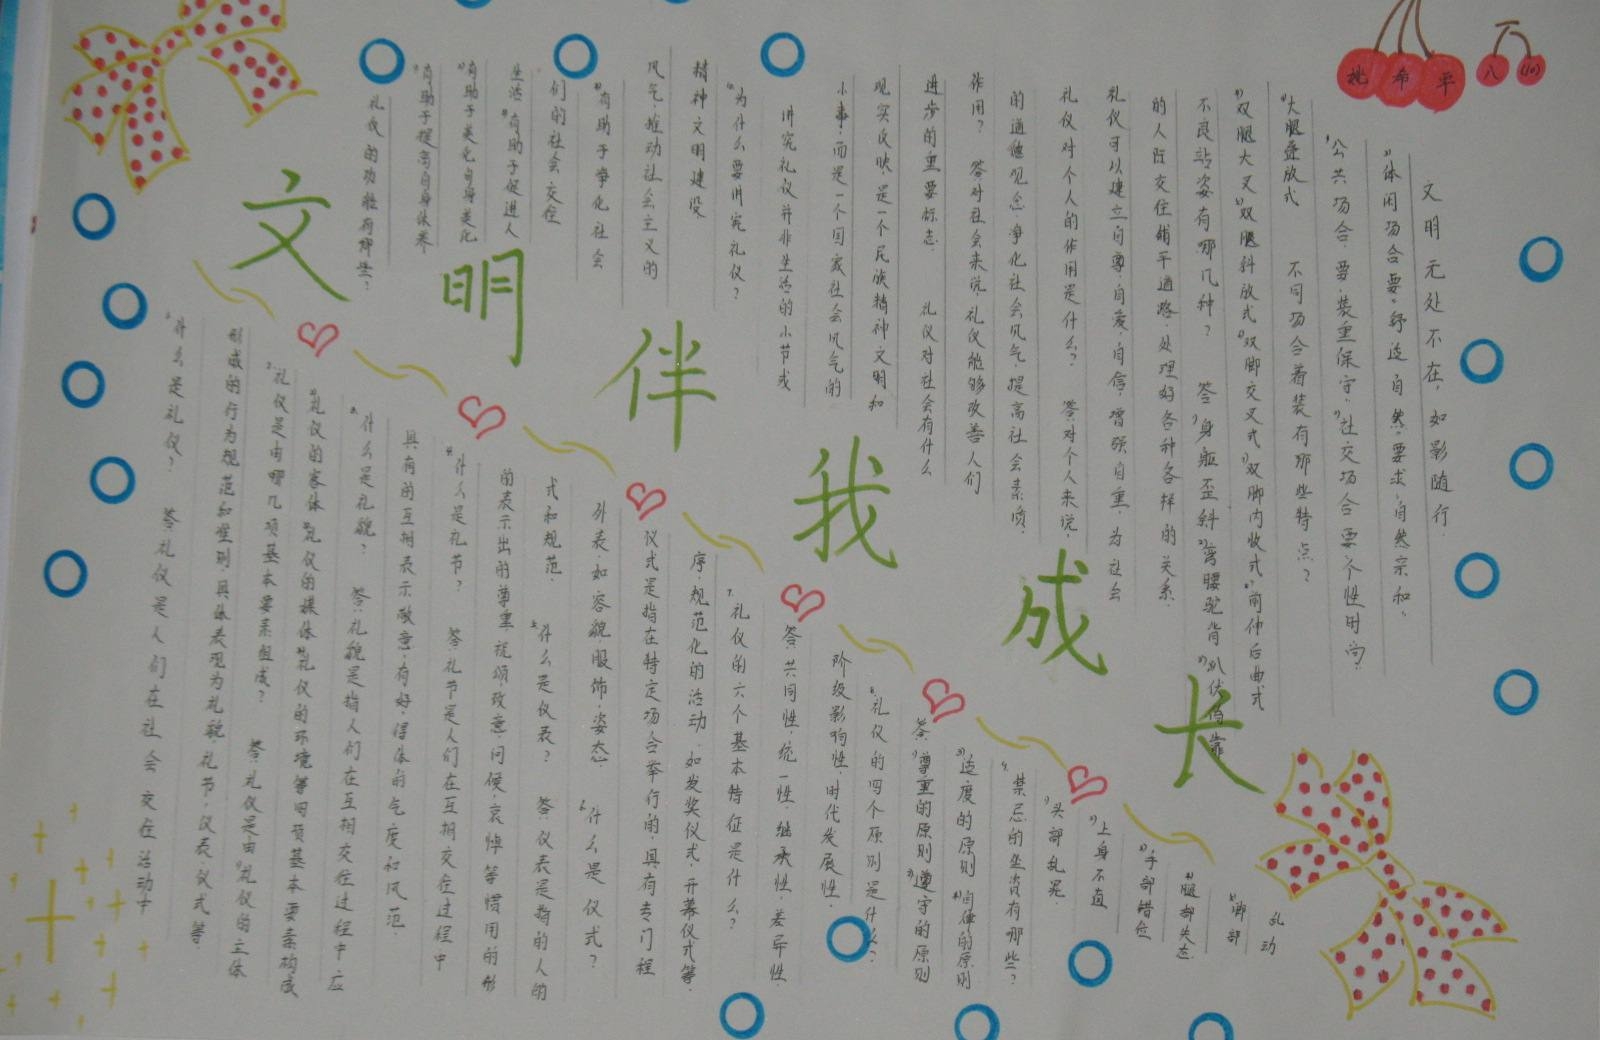 文明伴我成长
姚希平 八(10)
1.什么是礼仪? 答礼仪是人们在社会交往活动中
形成的行为规范和准则.具体表现为礼貌,礼节,仪表,仪式等.
2.礼仪是由哪几项基本要素组成? 答:礼仪是由 1)礼仪的主体
2)礼仪的客体 3)礼仪的媒体 4)礼仪的环境等四项基本要素构成
3.什么是礼貌? 答:礼貌是指人们在互相交往过程中应
具有的互相表示敬意,有好,得体的气度和风范.
4.什么是礼节? 答:礼节是人们在互相交往过程中
的表示出的尊重.祝颂.致意.问候.哀悼等惯用的形
式和规范. 5.什么是仪表? 答:仪表是指的人的
外表.如容貌服饰.姿态. 6.什么是仪式?
仪式是指在特定场合举行的.具有专门程
序.规范化的活动.如发奖仪式.开幕仪式等.
7.礼仪的六个基本特征是什么?
答:共同性,统一性,继承性,差异性.
阶级影响性,时代发展性.
8.礼仪的四个原则是什么?
答:1)尊重的原则 2)遵守的原则
3)适度的原则 4)自律的原则
9.禁忌的坐姿有哪些?
1)头部乱晃
2)上身不直
3)手部错位
4)腿部失态
5)脚部
乱动
礼仪的功能有哪些?
1)有助于提高自身休养
2)有助于美化自身美化
生活 3)有助于促进人
们的社会交往
4)有助于净化社会
风气推动社会主义的
精神文明建设
10.为什么要讲究礼仪?
讲究礼仪并非生活的小节或
小事,而是一个国家社会风气的
现实反映,是一个民族精神文明和
进步的重要标志. 礼仪对社会有什么
作用? 答对社会来说,礼仪能够改善人们
的道德观念,净化社会风气,提高社会素质.
礼仪对个人的作用是什么? 答:对个人来说,
礼仪可以建立自尊,自爱,自信,增强自重,为社会
的人际交往铺平道路,处理好各种各样的关系.
不良站姿有哪几种? 答 1)身躯歪斜 2)弯腰驼背 3)趴伏倚靠
1)双腿大叉 2)双腿斜放式 3)双脚交叉式 4)双脚内收式 5)前伸后曲式
6)大腿叠放式 不同场合着装有那些特点?
1)公共场合.要.装重保守. 2)社交场合要个性时尚.
3)休闲场合要.舒适自然.要求.自然宗和.
文明无处不在,如影随行.